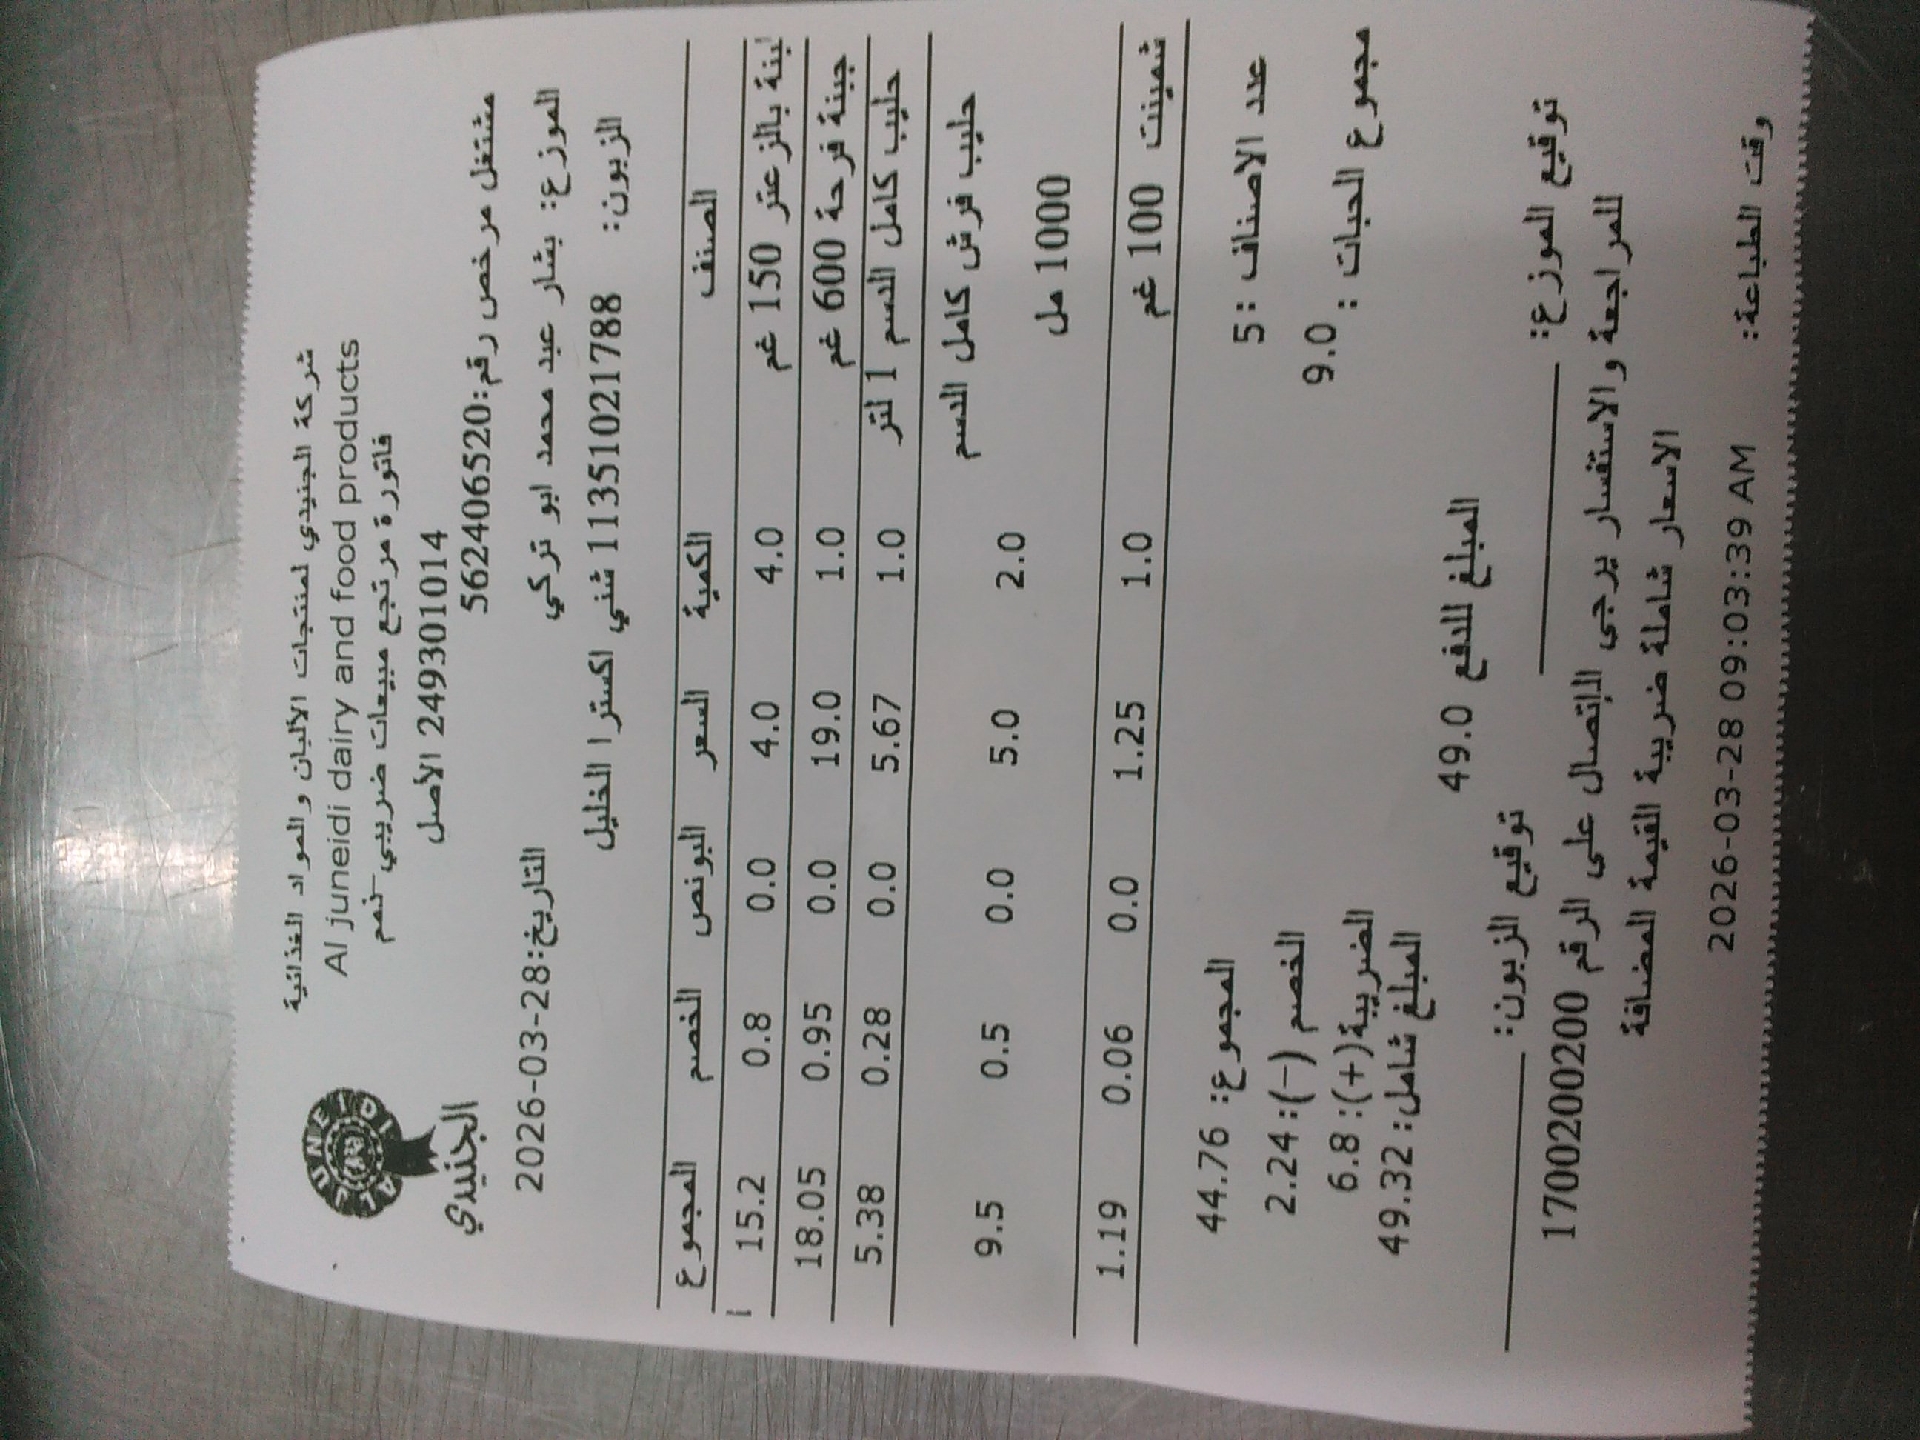 شركة الجنيدي لمنتجات الألبان والمواد الغذائية
Al juneidi dairy and food products
فاتورة مرتجع مبيعات ضريبي-نعم
249301014 الأصل
مشتغل مرخص رقم:562406520
AL JUNEIDI
الجنيدي
الموزع: بشار عبد محمد ابو تركي
التاريخ:2026-03-28
الزبون: 11351021788 شني اكسترا الخليل
الصنف الكمية السعر البونص الخصم المجموع
لبنة بالزعتر 150 غم 4.0 4.0 0.0 0.8 15.2
جبنة فرحة 600 غم 1.0 19.0 0.0 0.95 18.05
حليب كامل الدسم 1 لتر 1.0 5.67 0.0 0.28 5.38
حليب فرش كامل الدسم 1000 مل 2.0 5.0 0.0 0.5 9.5
شمينت 100 غم 1.0 1.25 0.0 0.06 1.19
عدد الاصناف :5
المجموع: 44.76
مجموع الحبات : 9.0
الخصم (-):2.24
الضريبة(+):6.8
المبلغ شامل:49.32
المبلغ للدفع 49.0
توقيع الموزع: توقيع الزبون:
للمراجعة والاستفسار يرجى الإتصال على الرقم 1700200200
الاسعار شاملة ضريبة القيمة المضافة
وقت الطباعة: 2026-03-28 09:03:39 AM